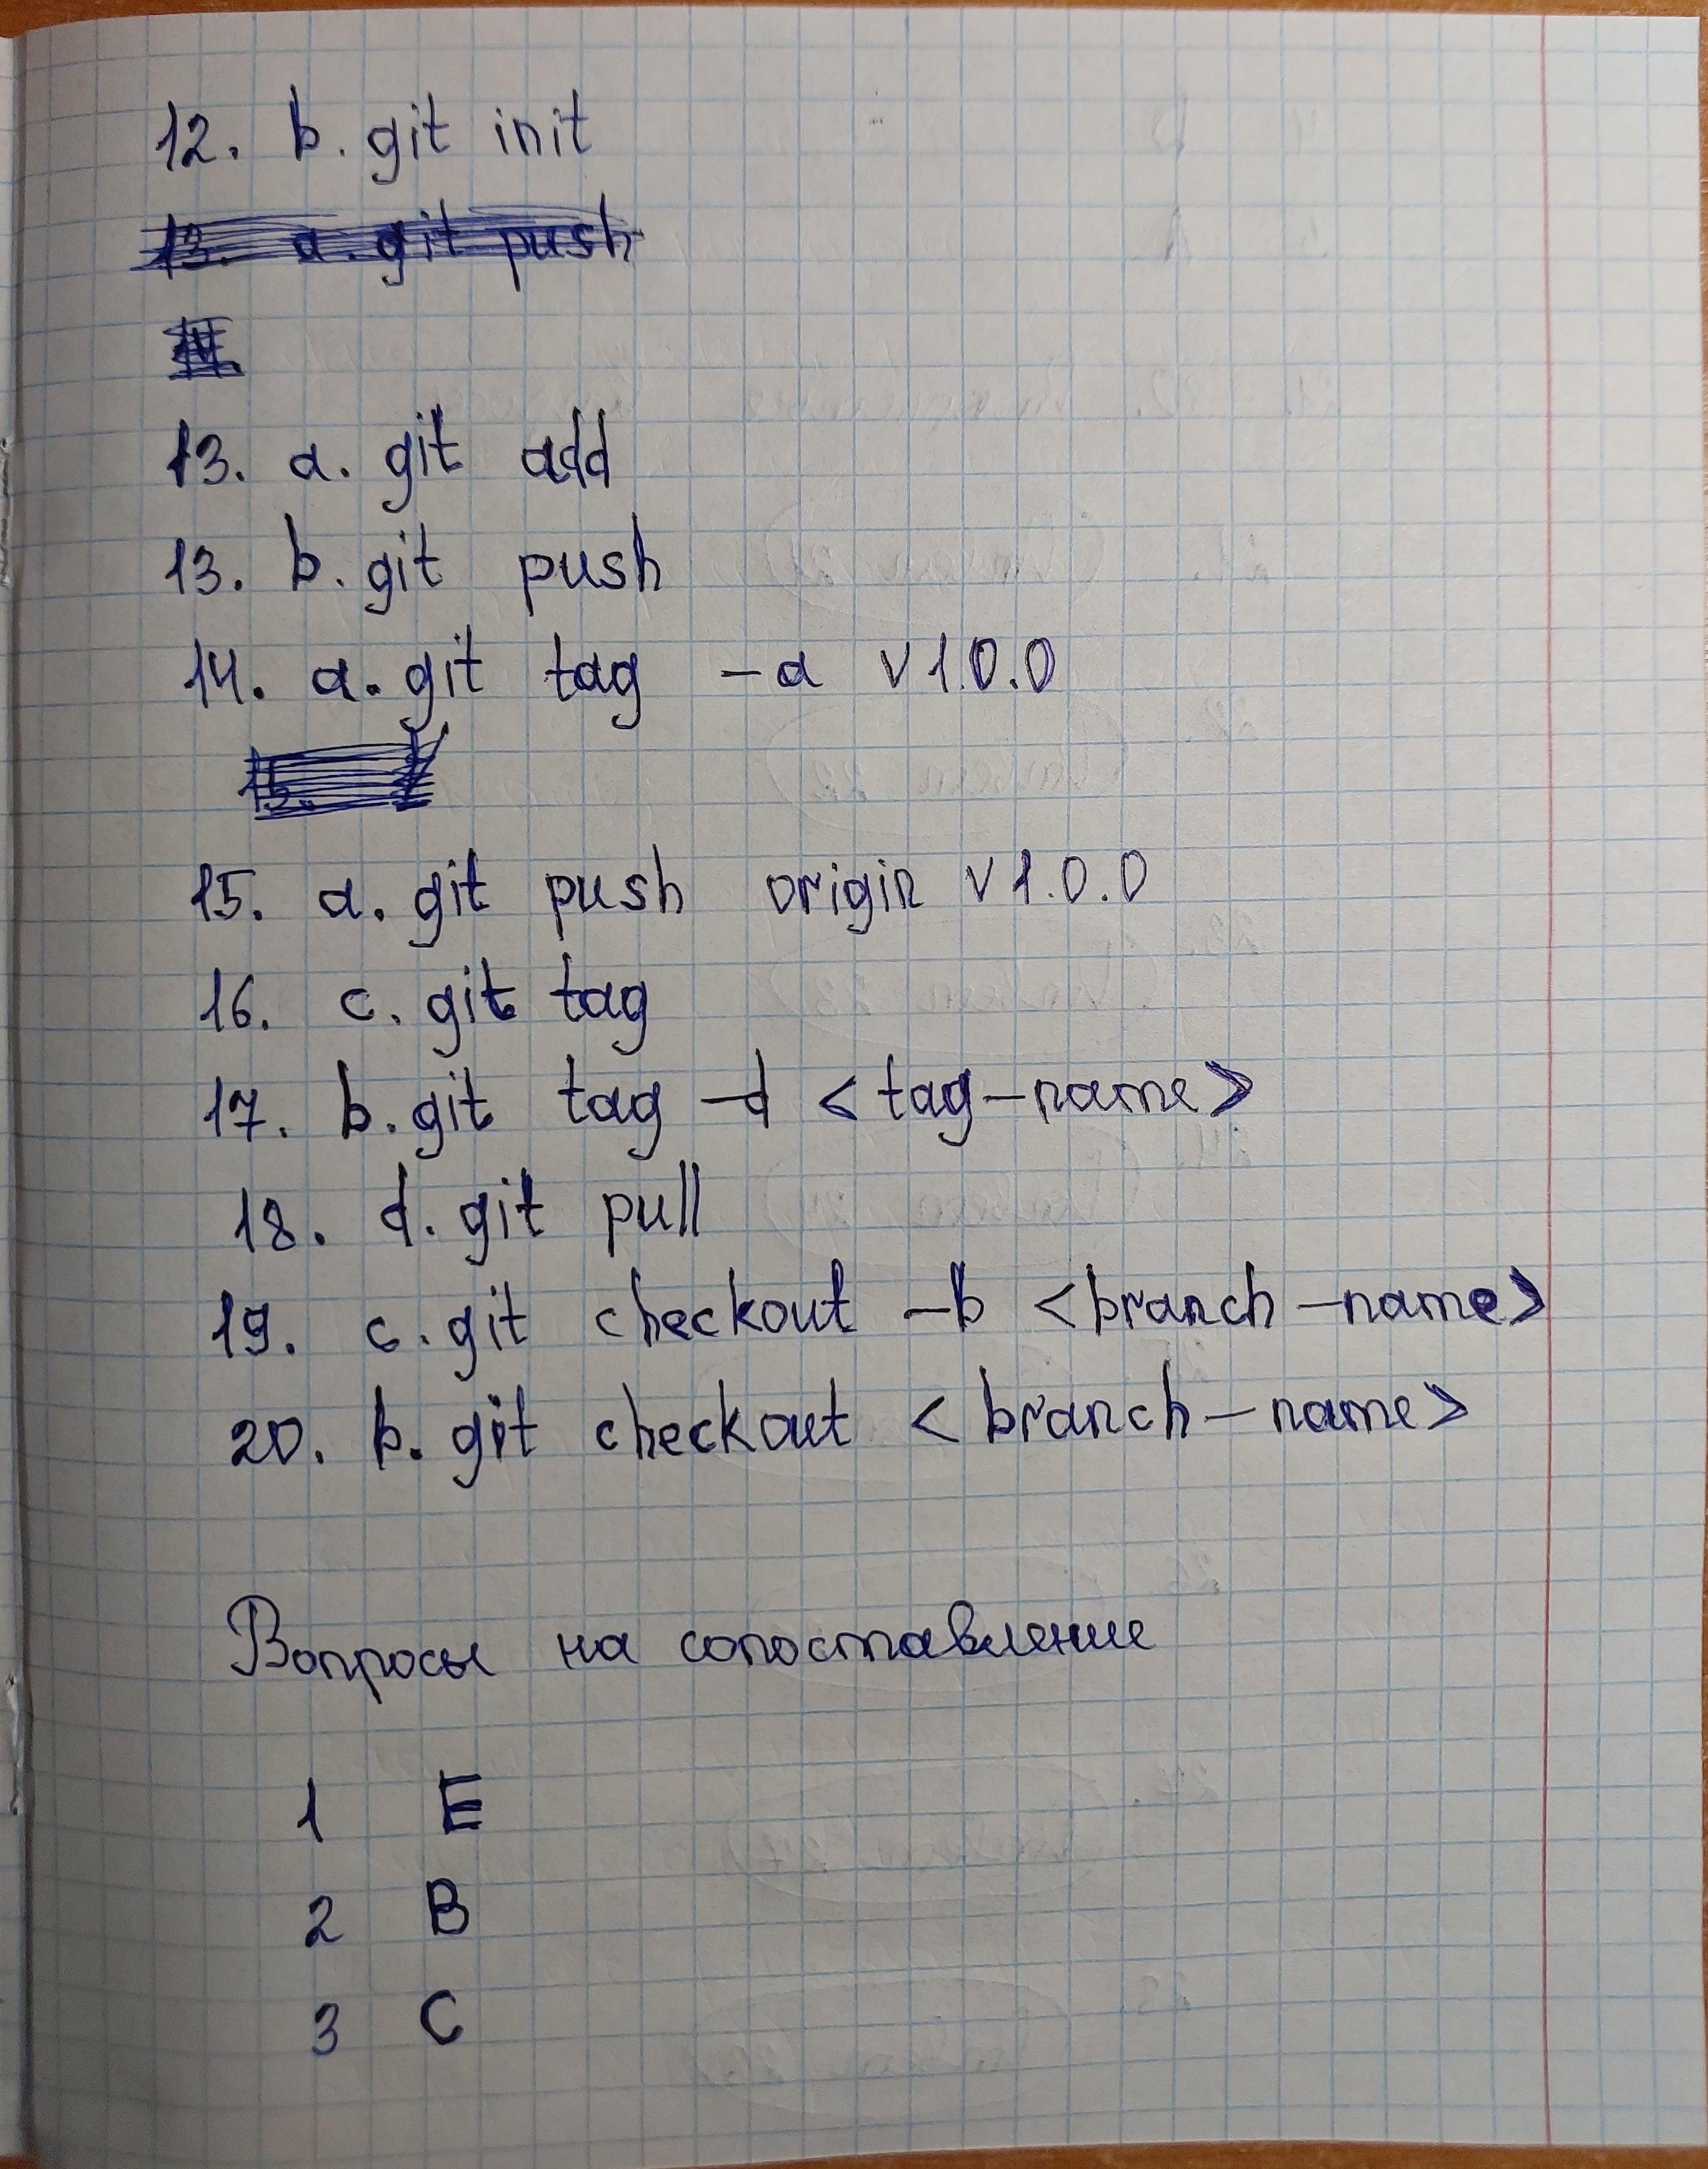 12. b. git init
13. a. git push
14.
13. a. git add
13. b. git push
14. a. git tag -a v1.0.0
15.
15. a. git push origin v1.0.0
16. c. git tag
17. b. git tag -d <tag-name>
18. d. git pull
19. c. git checkout -b <branch-name>
20. b. git checkout <branch-name>
Вопросы на сопоставление
1 E
2 B
3 C